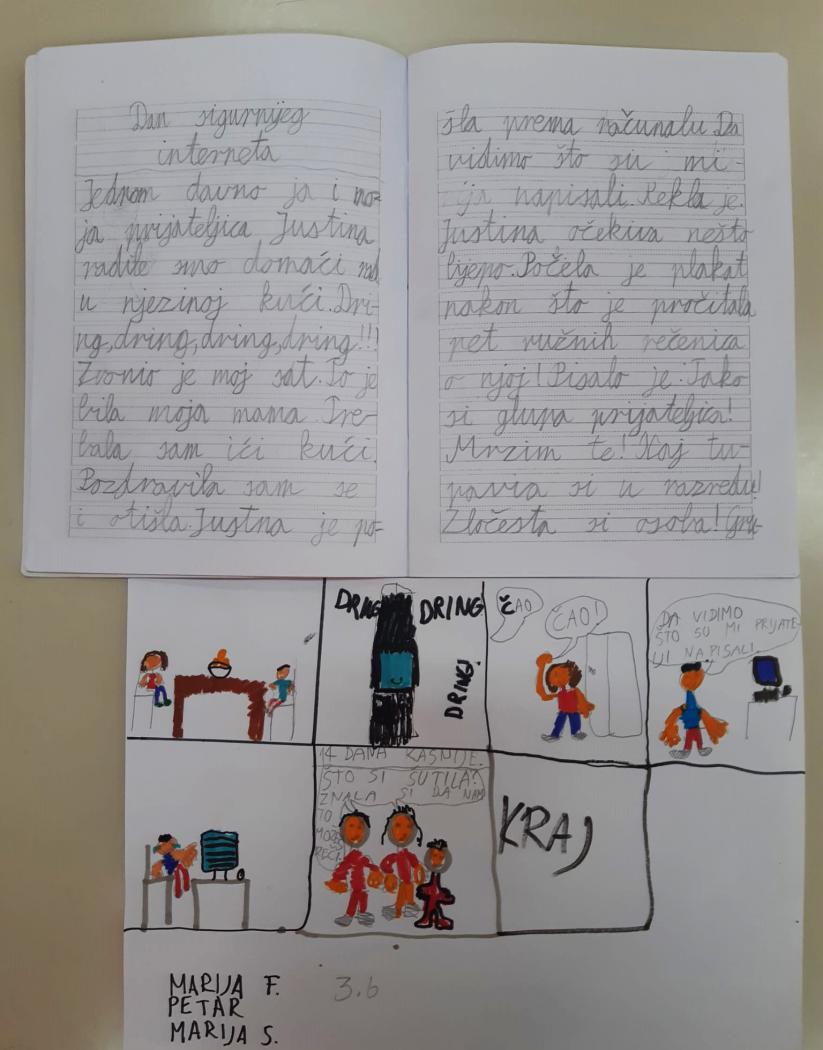 Dan sigurnijeg
interneta
Jednom davno ja i mo-
ja prijateljica Justina
radile smo domaći rad
u njezinoj kući. Dri-
ng, dring, dring, dring!!!
Zvonio je moj sat. To je
bila moja mama. Tre-
bala sam ići kući.
Pozdravila sam se
i otišla. Justna je po-
šla prema računalu. Da
vidimo što su mi
napisali. Rekla je.
Justina očekiva nešto
lijepo. Počela je plakat
nakon što je pročitala
pet ružnih rečenica
o njoj! Pisalo je: Jako
si glupa prijateljica!
Mrzim te! Koj tu-
pavia si u razredu!
Zločesta si osoba! Gru-
DRING DRING
DRING!
ČAO
ČAO!
DA VIDIMO
ŠTO SU MI PRIJATE-
LJI NAPISALI.
14 DANA KASNIJE.
ŠTO SI ŠUTILA?
ZNALA SI DA NAM
TO
MOŽEŠ
REĆI.
KRAJ
MARIJA F. 3.b
PETAR
MARIJA S.